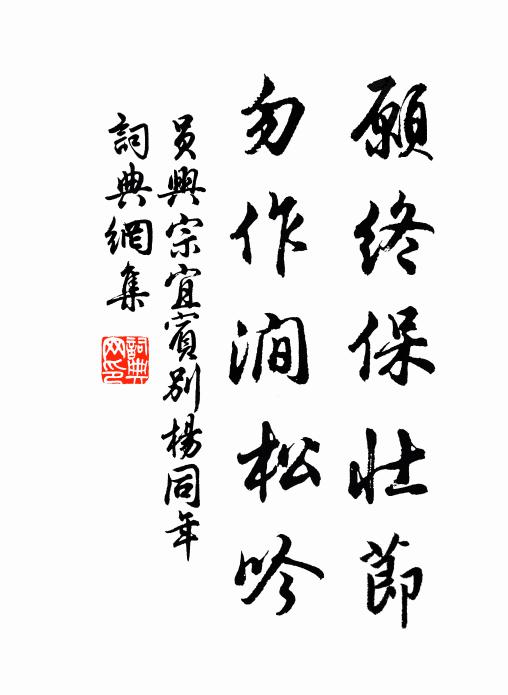 願終保壮節
勿作澗松吟
員興宗宜賓別楊同年
詞典網集
詞典网印